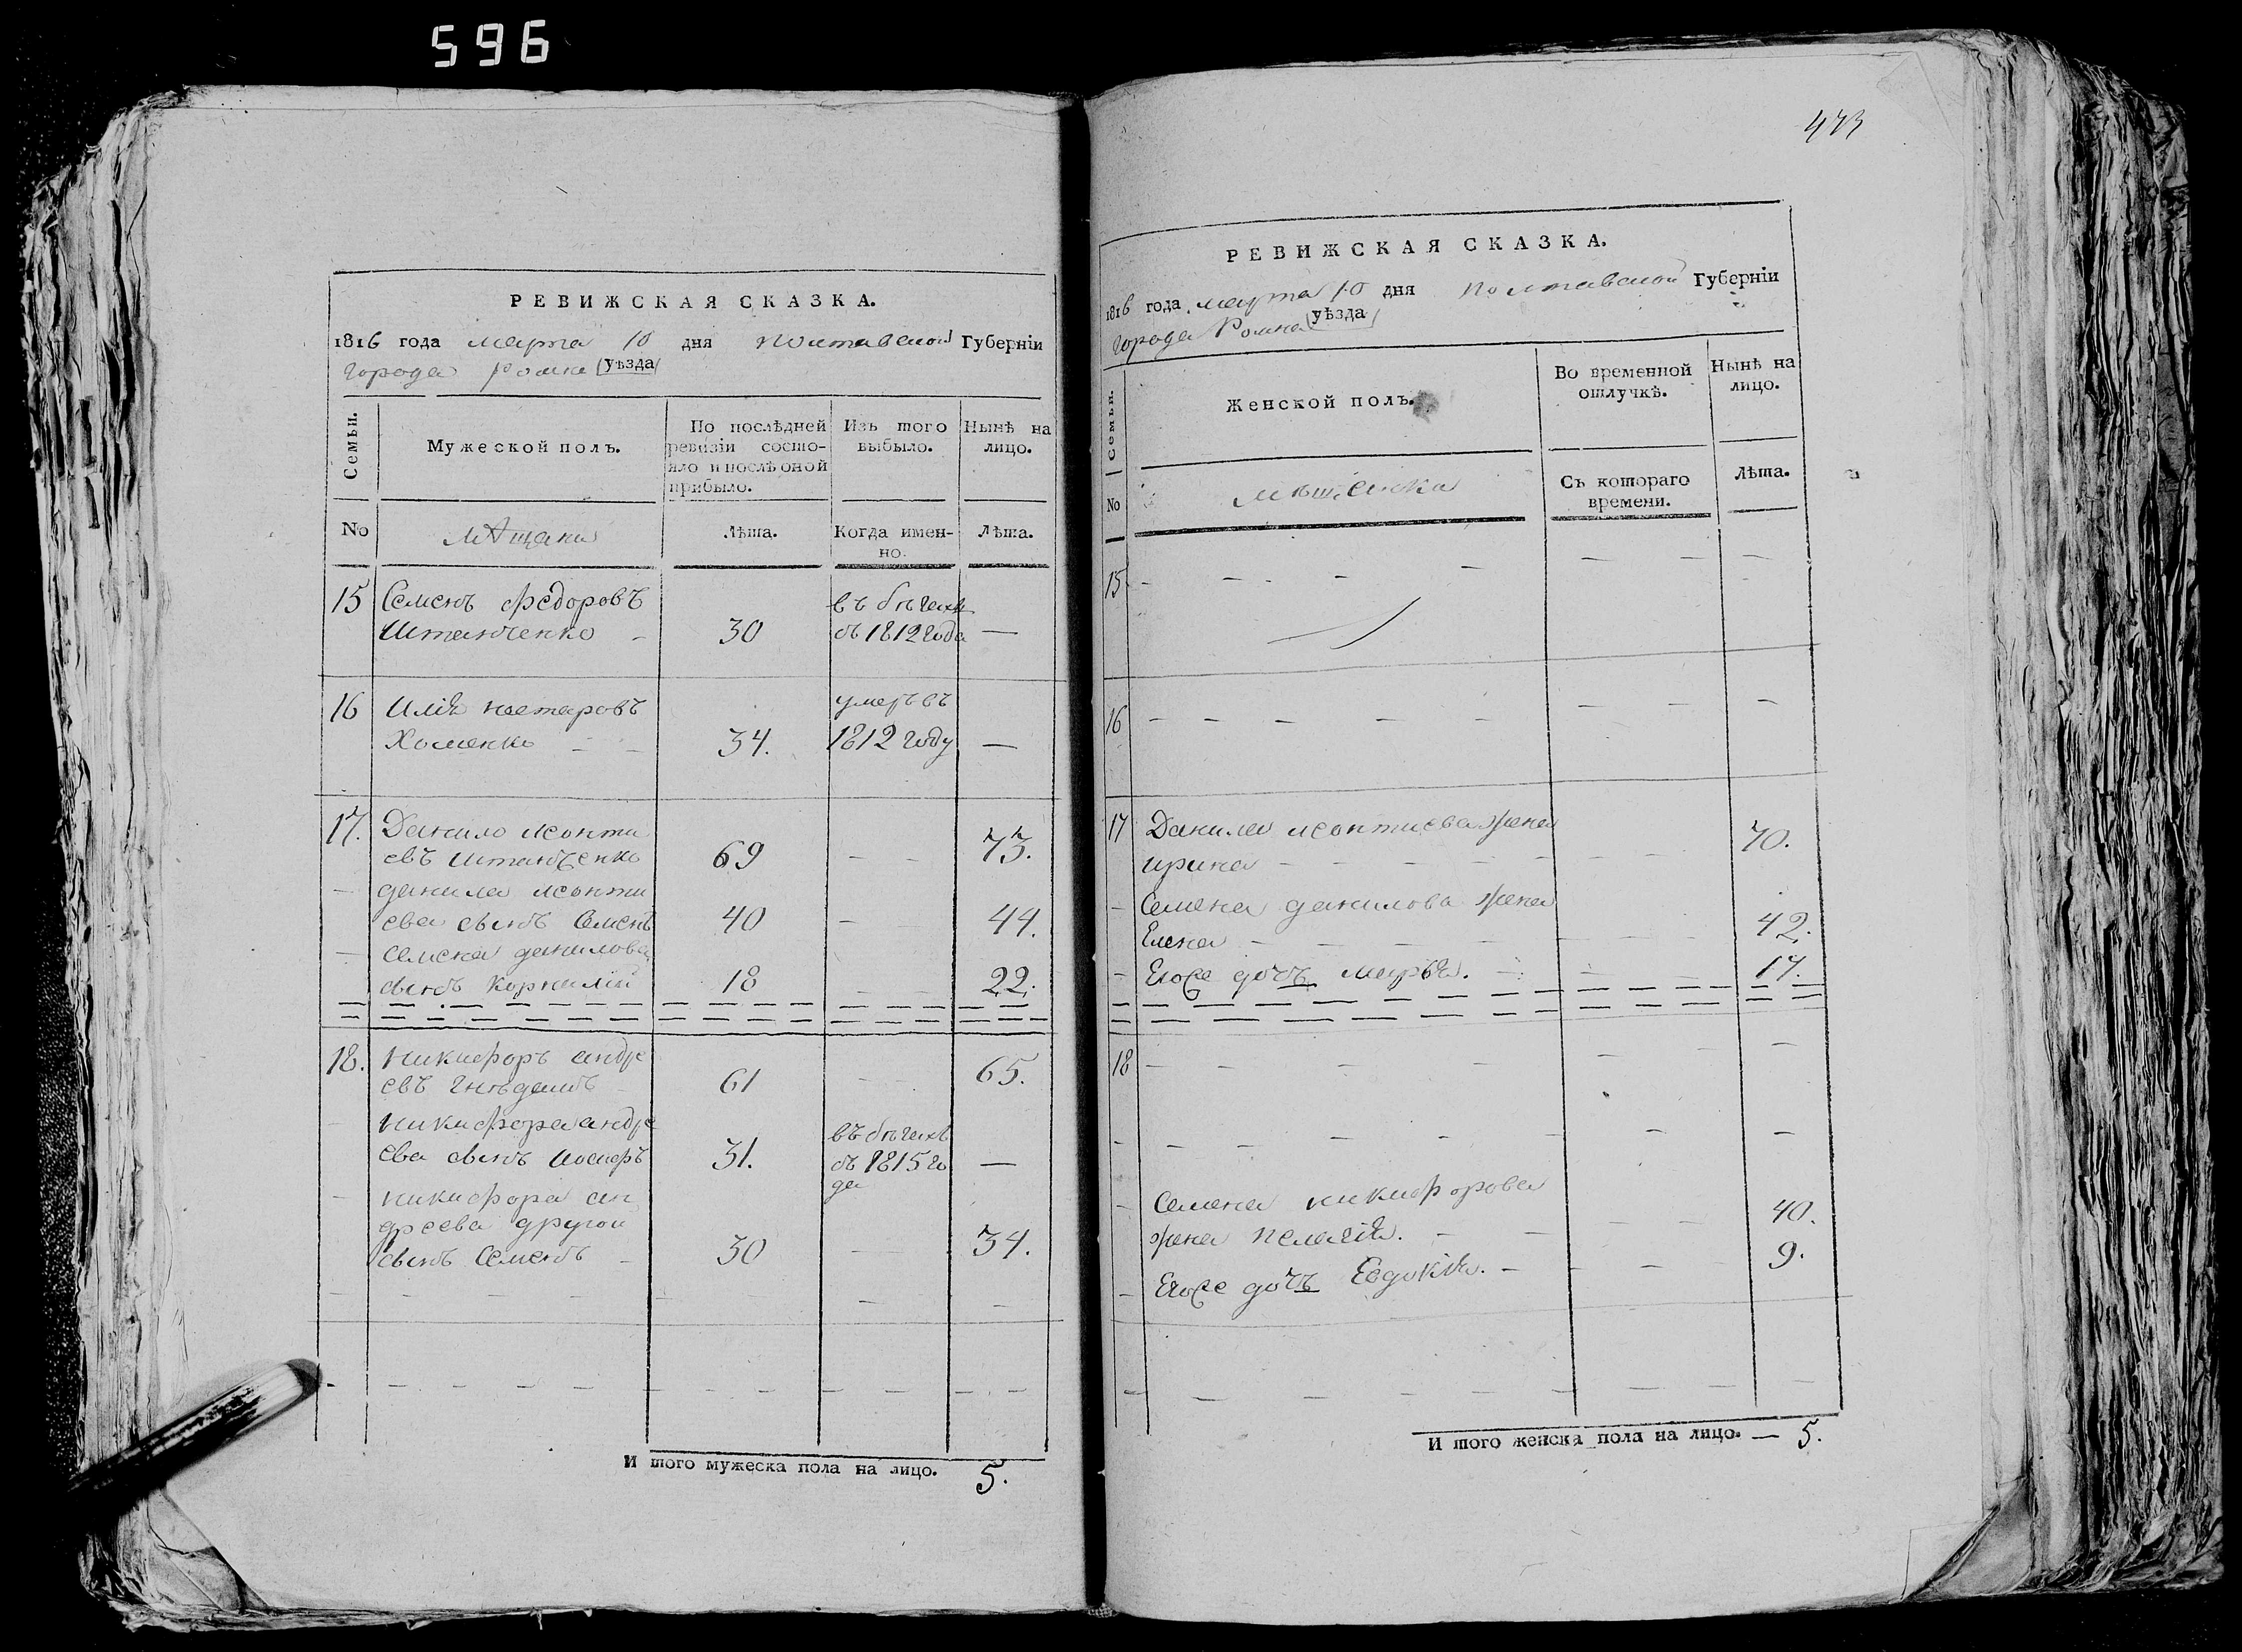 596
РЕВИЖСКАЯ СКАЗКА.
1816 года марта 10 дня Полтавской Губерніи
города Ромна уѣзда
Семьи.
Мужеской полъ.
По послѣдней ревизіи состояло и послѣ оной прибыло.
Изъ того выбыло.
Нынѣ на лицо.
No
мѣщане
Лѣта.
Когда именно.
Лѣта.
15 Семенъ Федоровъ въ бѣгахъ
30 съ 1812 года —
16 Илія Нестеровъ умеръ въ
Хоменко 34. 1812 году —
17. Данило Леонти
евъ 69 73.
Данила Леонти
ева сынъ Семенъ 40 44.
Семена Данилова
сынъ Корнилій 18 22.
18. Никифоръ Андре
евъ 61 65.
Никифора Андре въ бѣгахъ
ева сынъ Иосифъ 31. съ 1815 го —
да
Никифора Ан
дреева другой
сынъ Семенъ 30 34.
И того мужеска пола на лицо. 5.
473
РЕВИЖСКАЯ СКАЗКА.
1816 года марта 10 дня Полтавской Губерніи
города Ромна уѣзда
Семьи.
Женской полъ.
Во временной отлучкѣ.
Нынѣ на лицо.
No
Съ котораго времени.
Лѣта.
15
16
17 Данила Леонтиева жена
Ирина 70.
Семена Данилова жена
Елена 42.
Егоже дочъ Марья. 17.
18
Семена Никифорова
жена Пелагія. 40.
Егоже дочъ Евдокія. 9.
И того женска пола на лицо. — 5.